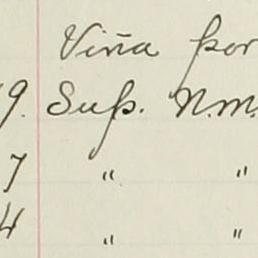 Viña por
9. Sup. N.m.
7 " "
4 " "